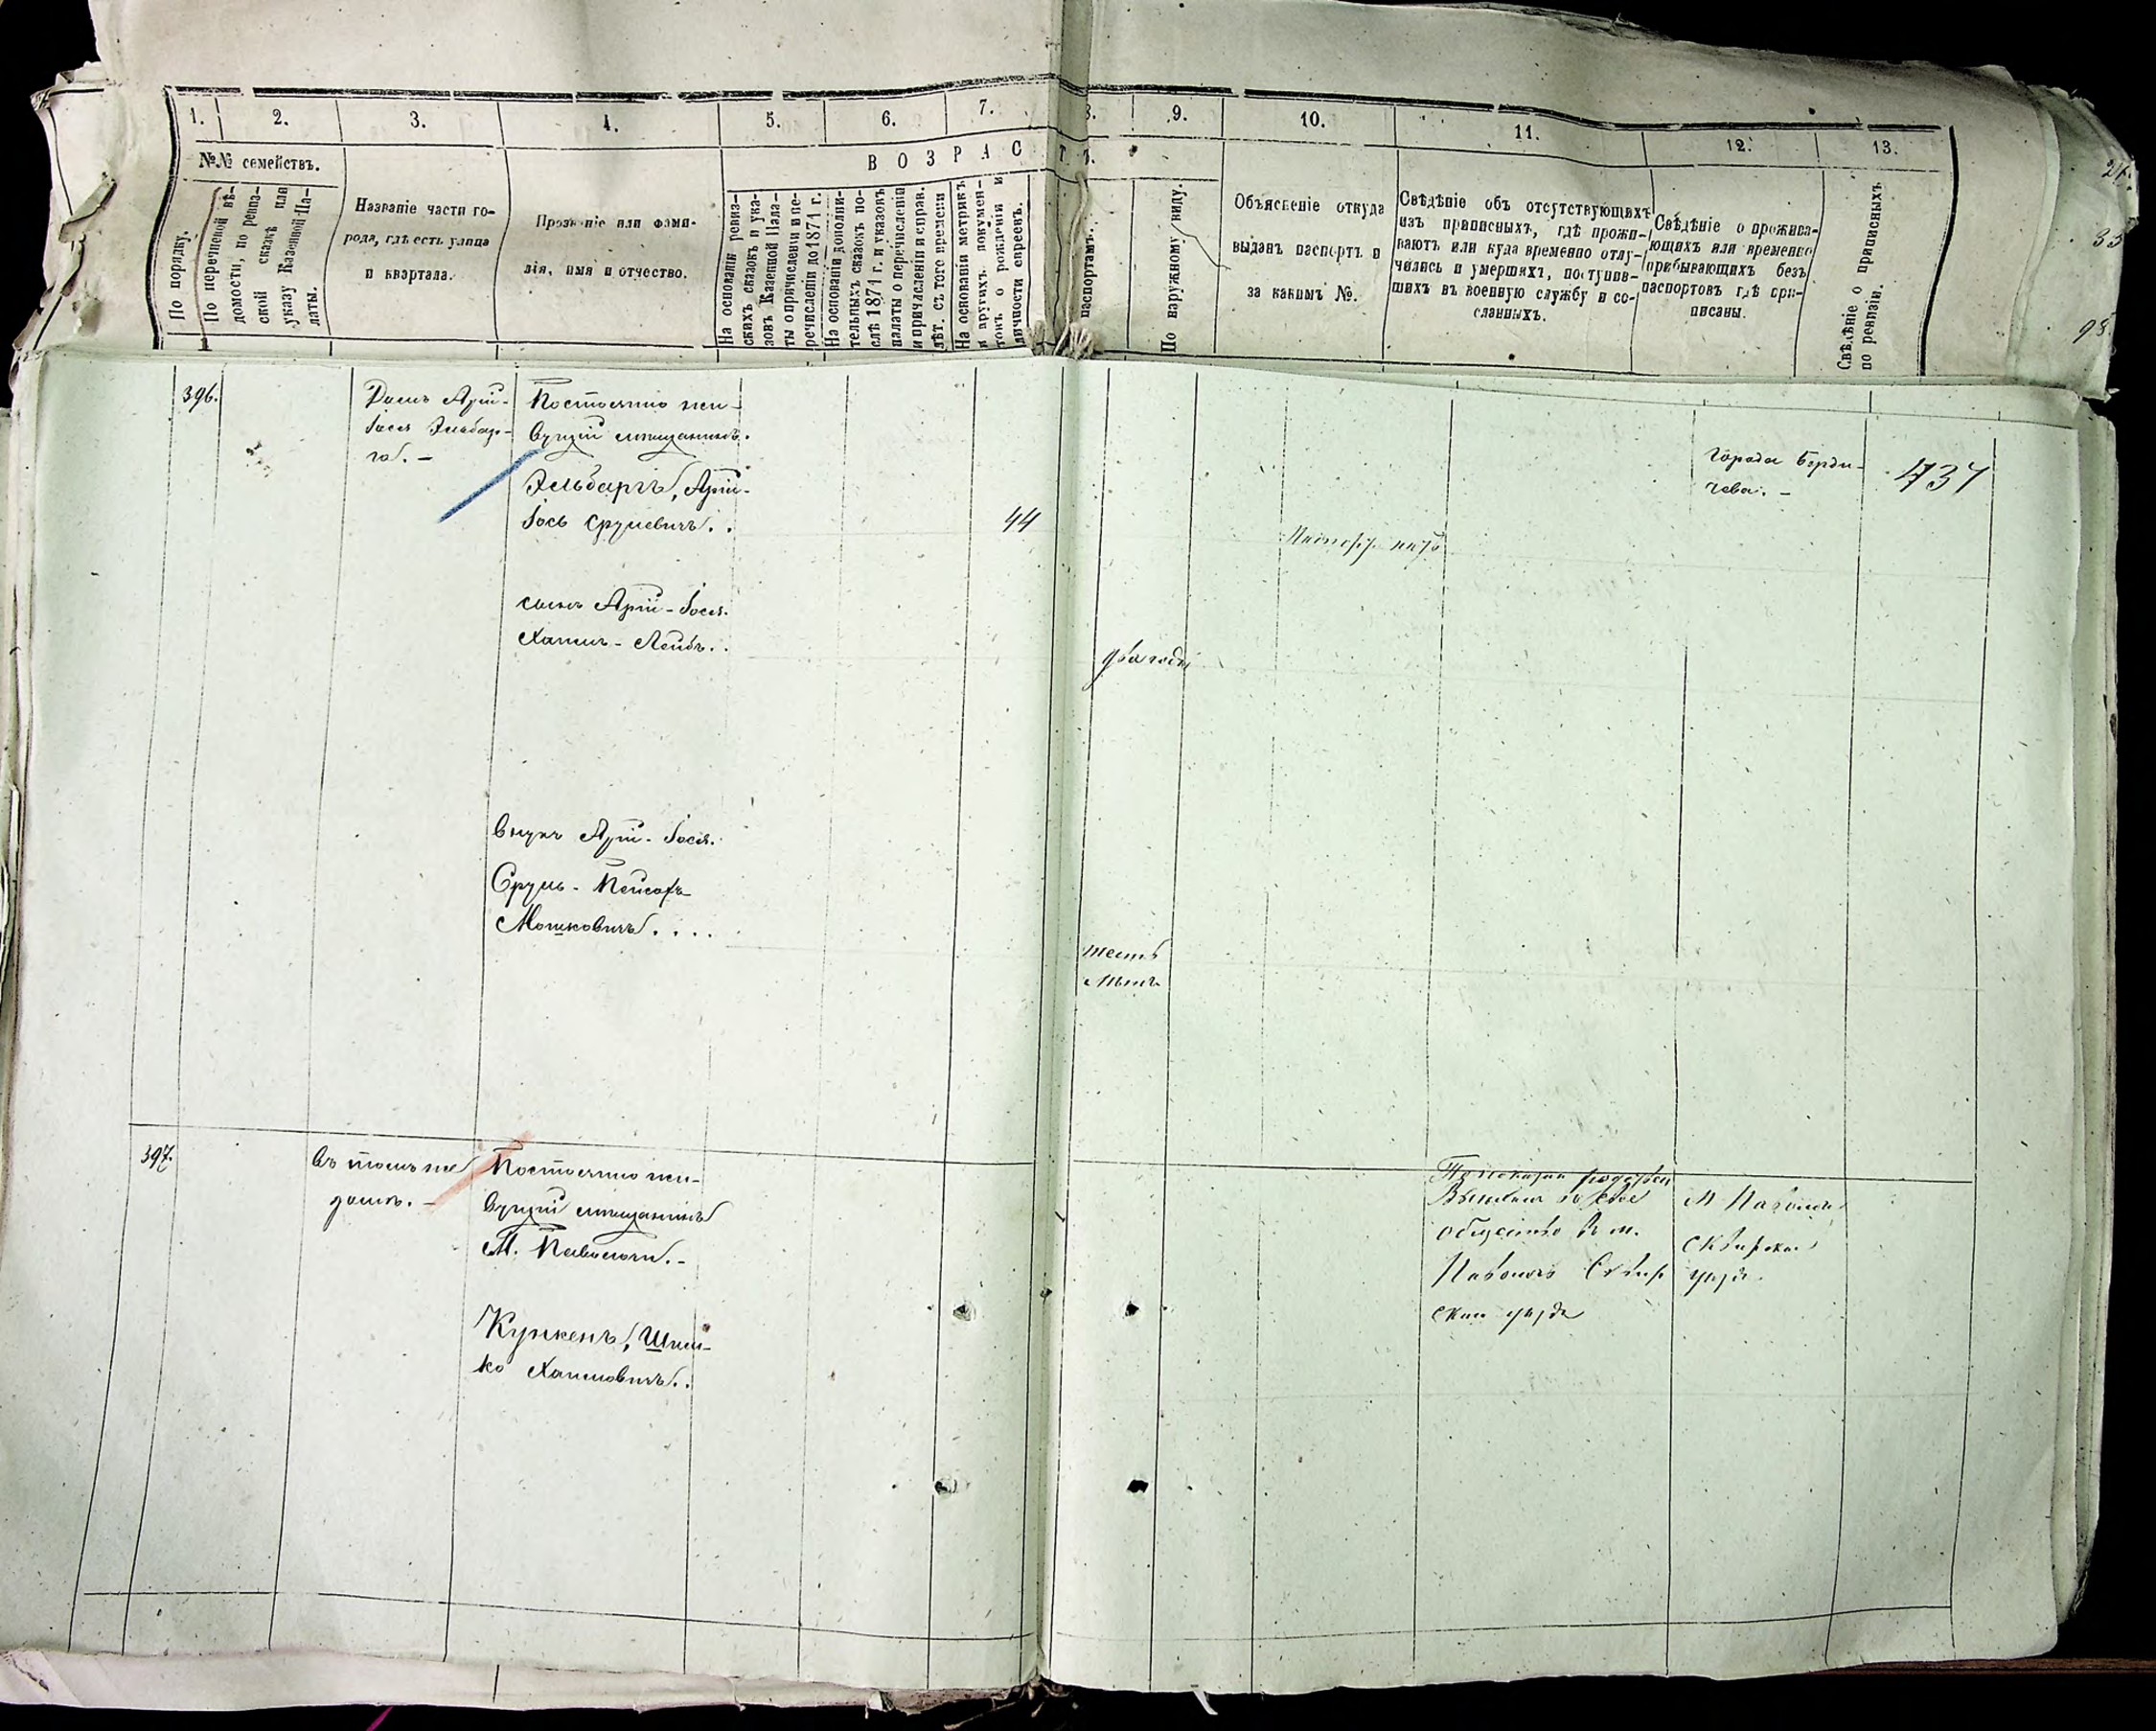 1. 2. 3. 4. 5. 6. 7. 8. 9. 10. 11. 12. 13.
№№ семействъ.
ВОЗРАСТЪ.
По порядку.
По перечневой вѣ-
домости, по ревиз-
ской сказкѣ или
указу Казенной Па-
латы.
Названіе части го-
рода, гдѣ есть улица
и квартала.
Прозваніе или фами-
лія, имя и отчество.
На основаніи ревиз-
скихъ сказокъ и ука-
зовъ Казенной Пала-
ты о причисленіи и пе-
речисленіи до 1871 г.
На основаніи дополни-
тельныхъ сказокъ по-
слѣ 1871 г. и указовъ
палаты о перечисленіи
и причисленіи и справ.
лѣт. съ того времени
На основаніи метрикъ
и другихъ докумен-
товъ о рожденіи и
личности евреевъ.
паспортамъ.
По наружному виду.
Объясненіе откуда
выданъ паспортъ и
за какимъ №.
Свѣдѣніе объ отсутствующихъ
изъ приписныхъ, гдѣ прожи-
ваютъ или куда временно отлу-
чились и умершихъ, поступив-
шихъ въ военную службу и со-
сланныхъ.
Свѣдѣніе о прожива-
ющихъ или временно
прибывающихъ безъ
паспортовъ гдѣ при-
писаны.
Свѣдѣніе о приписныхъ
по ревизіи.
396.
Домъ Арій-
Іося Эльбар-
га. —
Постоянно жи-
вущій мѣщанинъ.
Эльбаргъ, Арій-
Іось Срулевичъ. .
44
города Берди-
чева. —
437
сынъ Арій-Іося.
Хаимъ-Лейбъ. .
два года
внукъ Арій-Іося.
Сруль-Пейсахъ
Мошковичъ. . . .
шесть
лѣтъ
397.
въ томъ же
домѣ. —
Постоянно жи-
вущій мѣщанинъ
М. Паволочи. —
Кункенъ, Шим-
ко Хаимовичъ. .
общество въ м.
Паволочь Сквир
скаго уѣзда
М Паволочь
Сквирскаго
уѣзда.